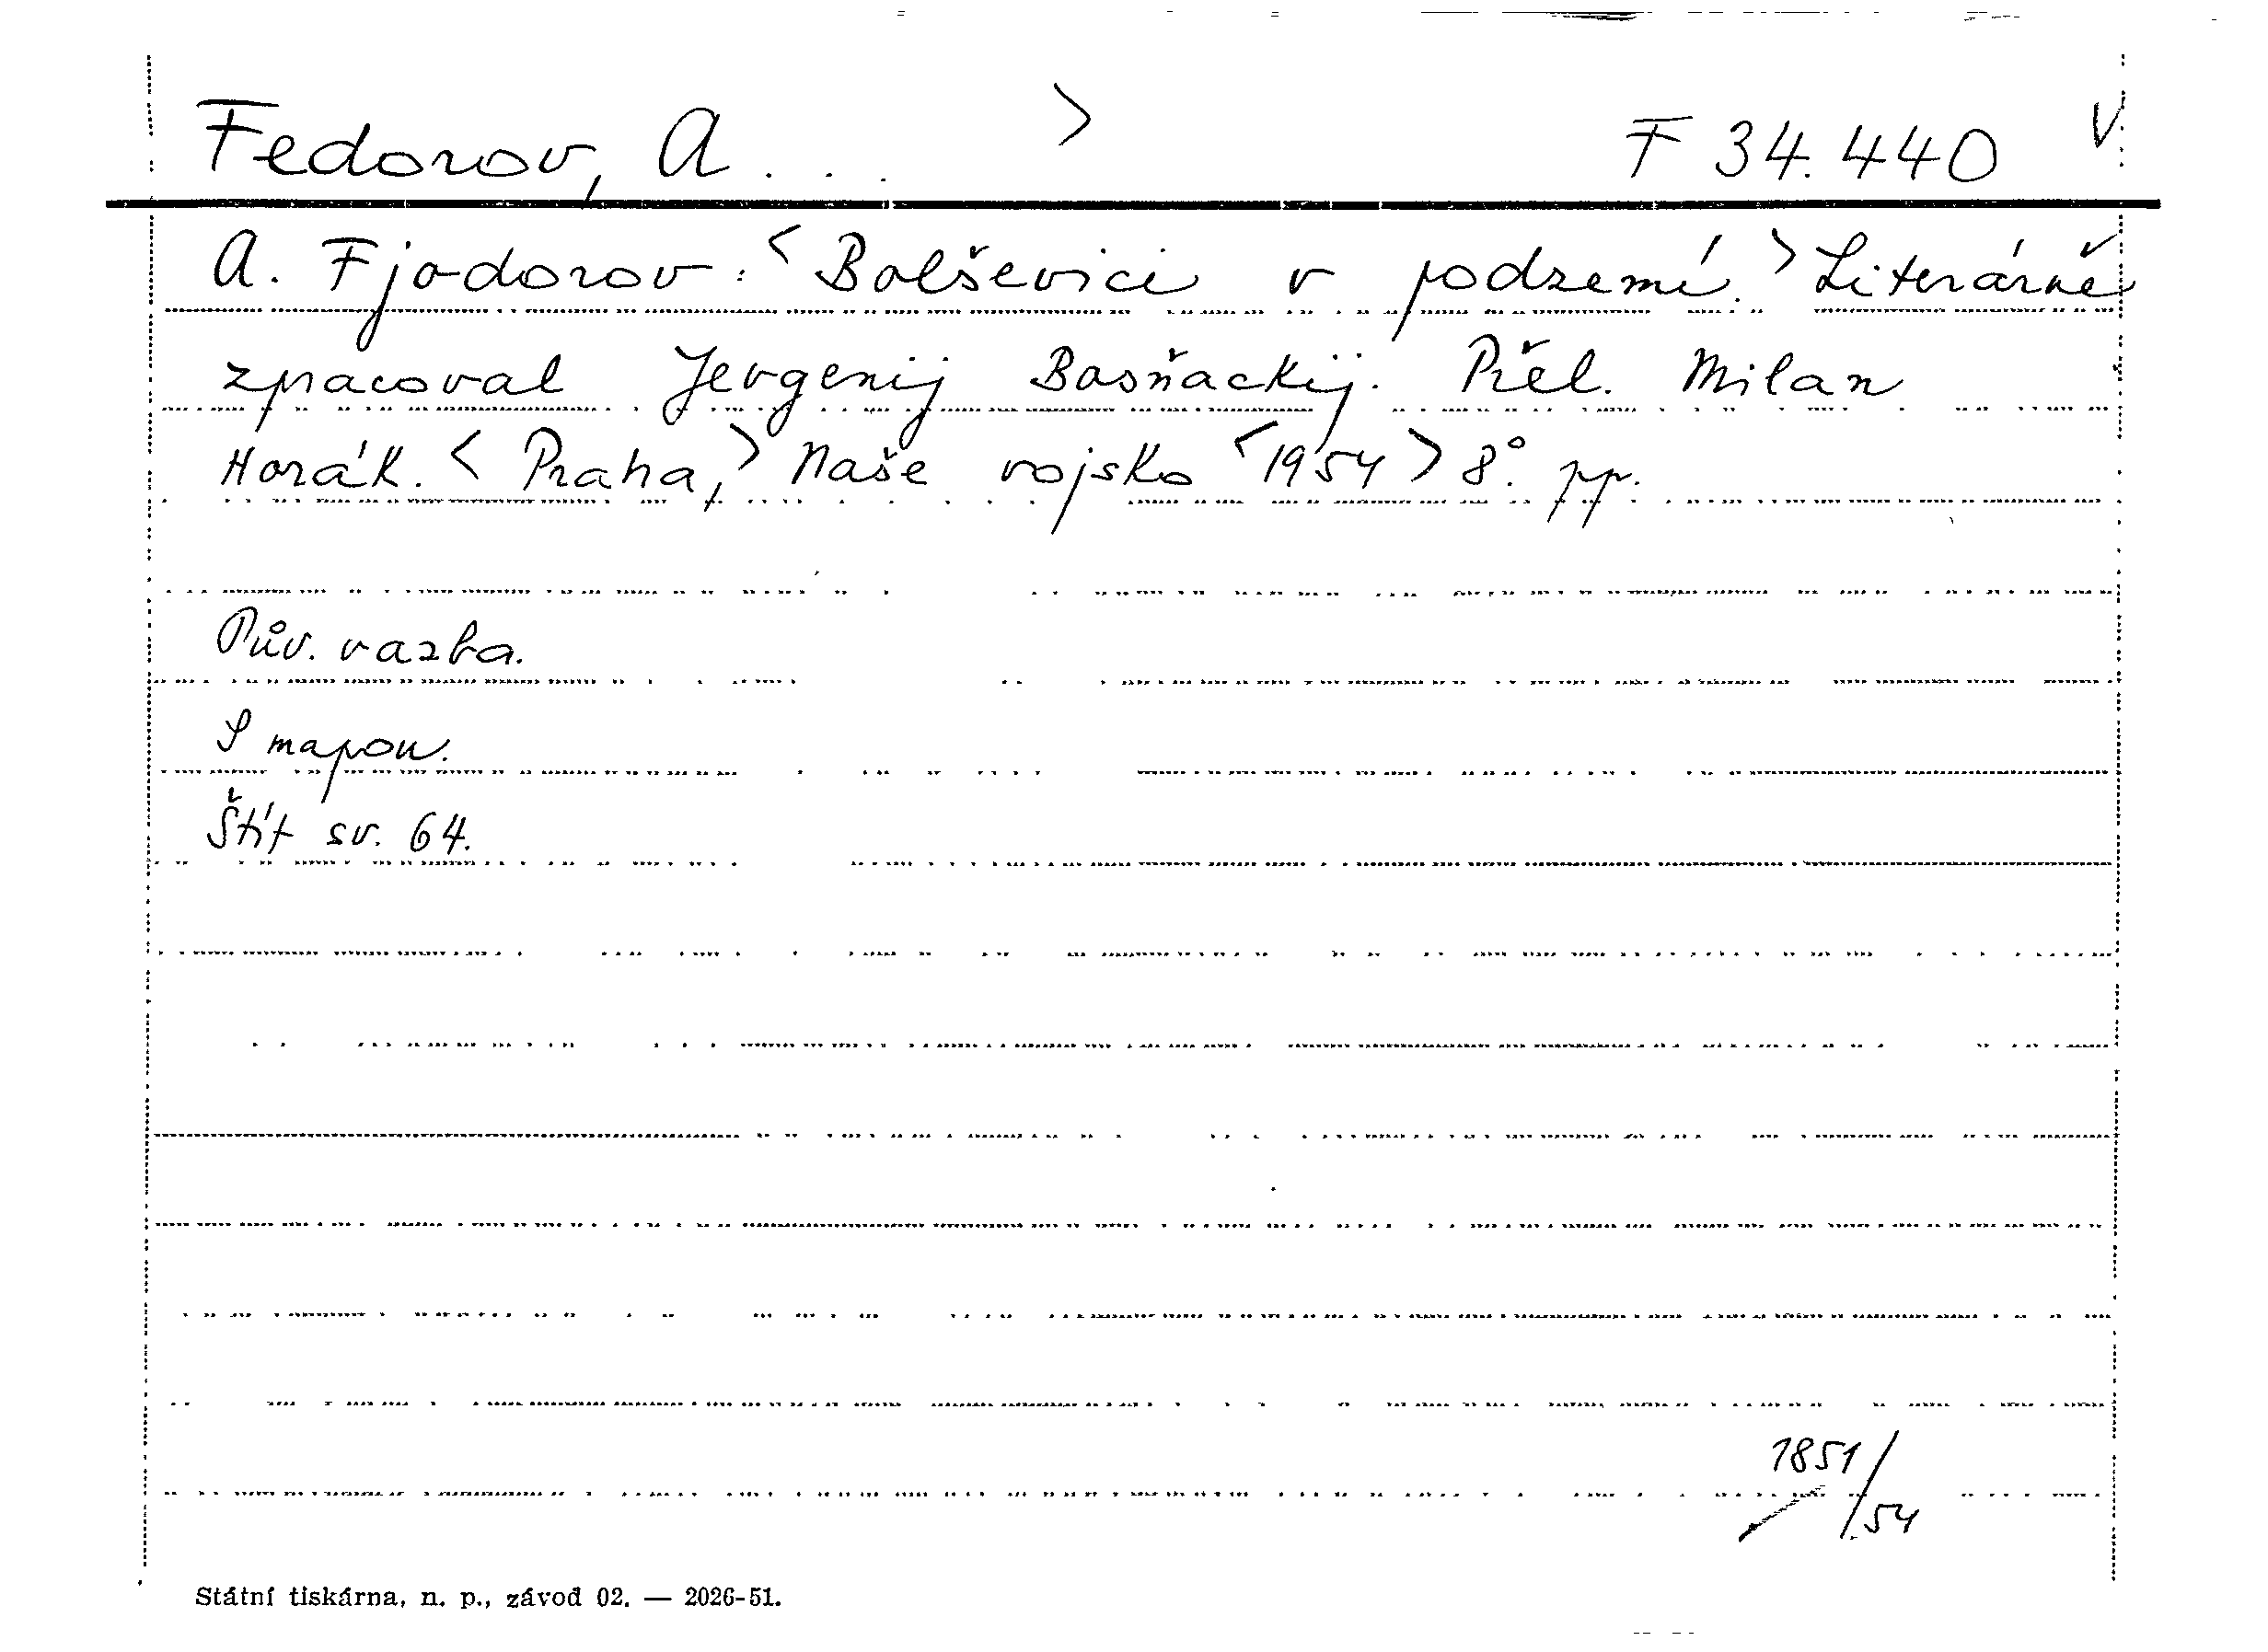 Fedorov, A . . . > F 34.440 V
A. Fjodorov: <Bolševici v podzemí.> Literárně
zpracoval Jevgenij Bosňackij. Přel. Milan
Horák. <Praha,> Naše vojsko <1954> 8°. pp.
Pův. vazba.
S mapou.
Štít sv. 64.
1851/54
Státní tiskárna, n. p., závod 02. — 2026-51.